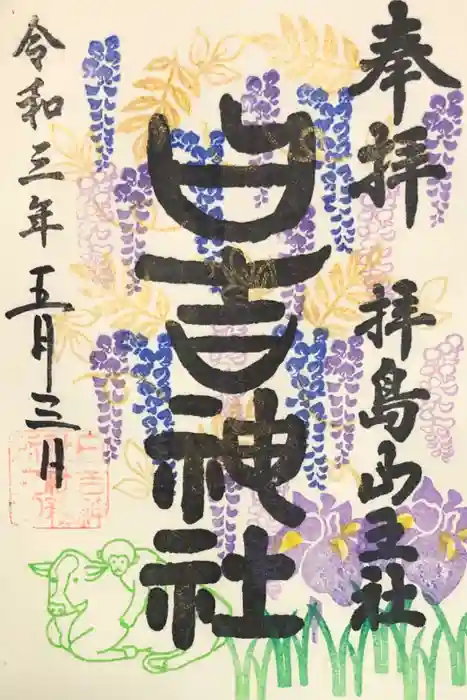 奉拝 拝島山王社
日吉神社
令和三年五月三日